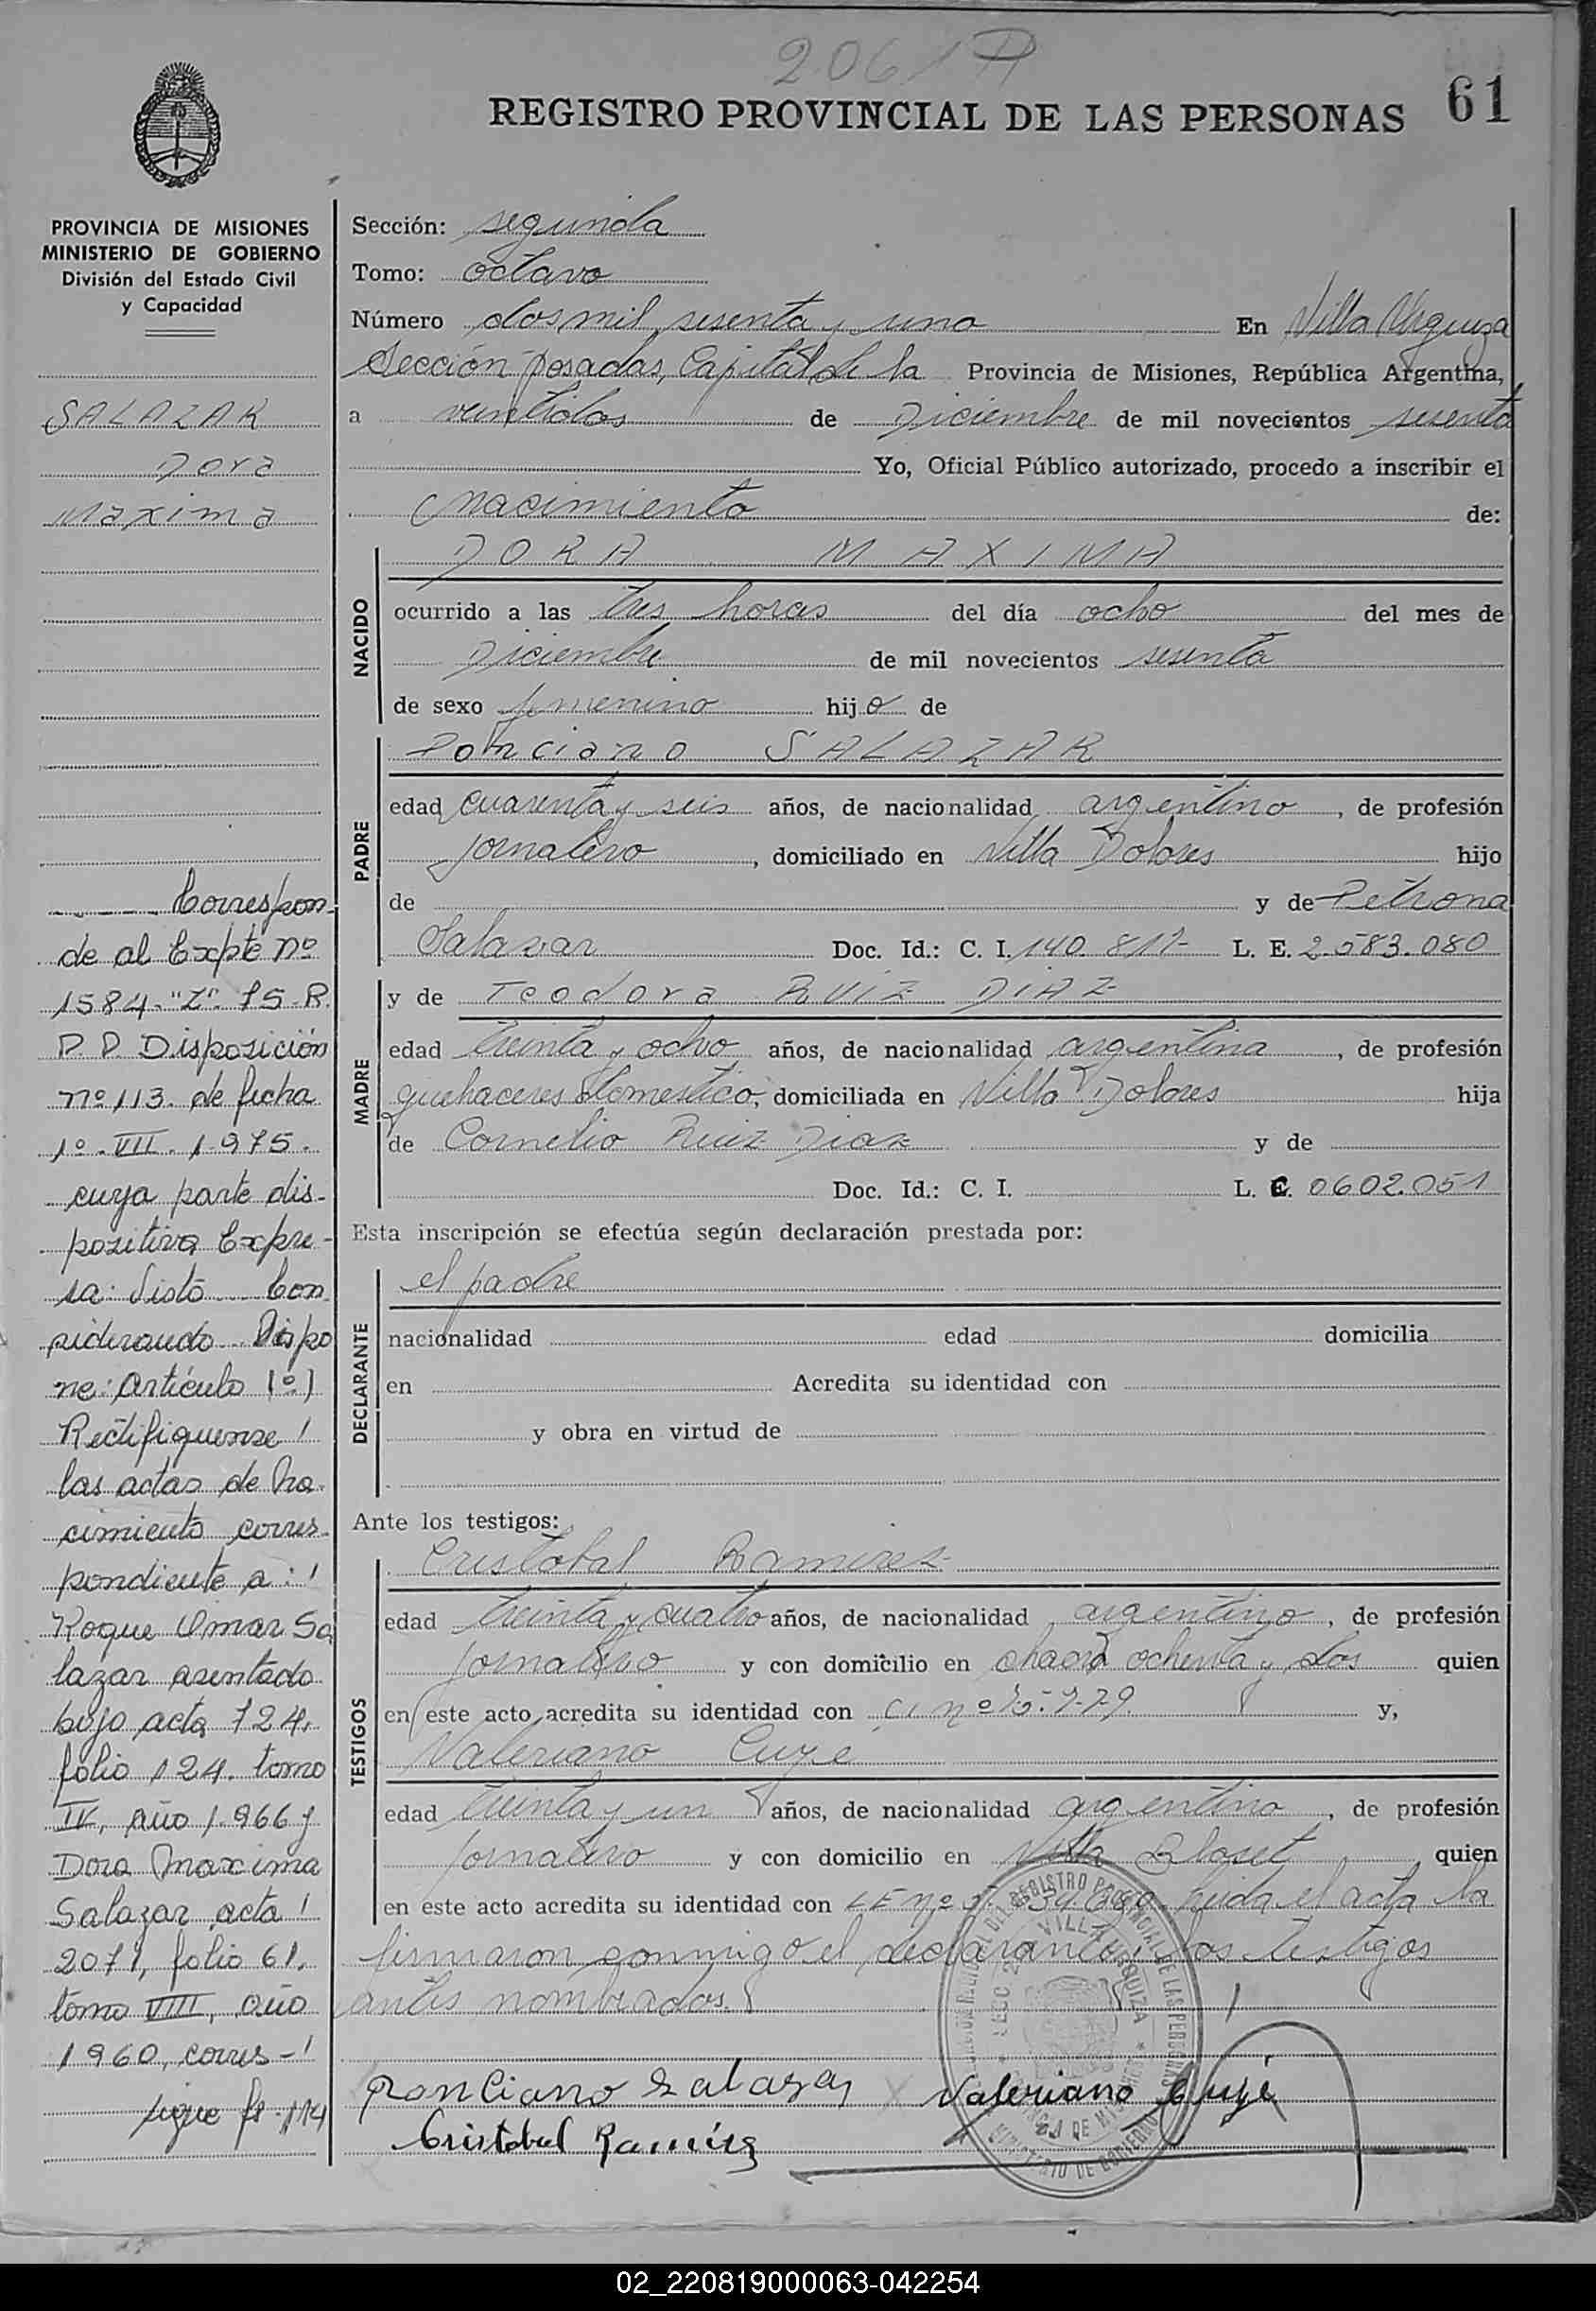 2061 A
REGISTRO PROVINCIAL DE LAS PERSONAS 61
PROVINCIA DE MISIONES
MINISTERIO DE GOBIERNO
División del Estado Civil
y Capacidad
SALAZAR
Dora
Maxima
Correspon-
de al Expte Nº
1584-"Z"-75-R.
P. P. Disposición
nº 113. de fecha
1º. VII. 1.975.
cuya parte dis-
positiva Expre-
sa: Visto Con
siderando Dispo
ne: Artículo 1º)
Rectifiquense
las actas de Na-
cimiento corres-
pondiente a:
Roque Omar Sa
lazar asentado
bajo acta 724,
folio 124. tomo
IV, año 1.966 y
Dora Maxima
Salazar acta
2071, folio 61,
tomo VIII, año
1960, corres-
sigue fs. 114
Sección: segunda
Tomo: octavo
Número dos mil sesenta y uno En Villa Urquiza
Sección Posadas, Capital de la Provincia de Misiones, República Argentina,
a veintidos de Diciembre de mil novecientos sesenta
Yo, Oficial Público autorizado, procedo a inscribir el
Nacimiento de:
NACIDO
DORA MAXIMA
ocurrido a las tres horas del día ocho del mes de
Diciembre de mil novecientos sesenta
de sexo femenino hija de
PADRE
Ponciano SALAZAR
edad cuarenta y seis años, de nacionalidad argentino, de profesión
jornalero, domiciliado en Villa Dolores hijo
de y de Petrona
Salazar Doc. Id.: C. I. 140.817- L. E. 2.583.080
MADRE
y de Teodora RUIZ DIAZ
edad treinta y ocho años, de nacionalidad argentina, de profesión
quehaceres domestico, domiciliada en Villa Dolores hija
de Cornelio Ruiz Diaz y de
Doc. Id.: C. I. L. C. 0602.051
Esta inscripción se efectúa según declaración prestada por:
DECLARANTE
el padre
nacionalidad edad domicilia
en Acredita su identidad con
y obra en virtud de
Ante los testigos:
TESTIGOS
Cristobal Ramirez
edad treinta y cuatro años, de nacionalidad argentino, de profesión
jornalero y con domicilio en chacra ochenta y dos quien
en este acto acredita su identidad con CI nº y,
Valeriano Cuye
edad treinta y un años, de nacionalidad argentino, de profesión
jornalero y con domicilio en Villa Bloset quien
en este acto acredita su identidad con LE nº leida el acta la
firmaron conmigo el declarante y los testigos
antes nombrados.
Ponciano Salazar Valeriano Cuye
Cristobal Ramirez
02_220819000063-042254